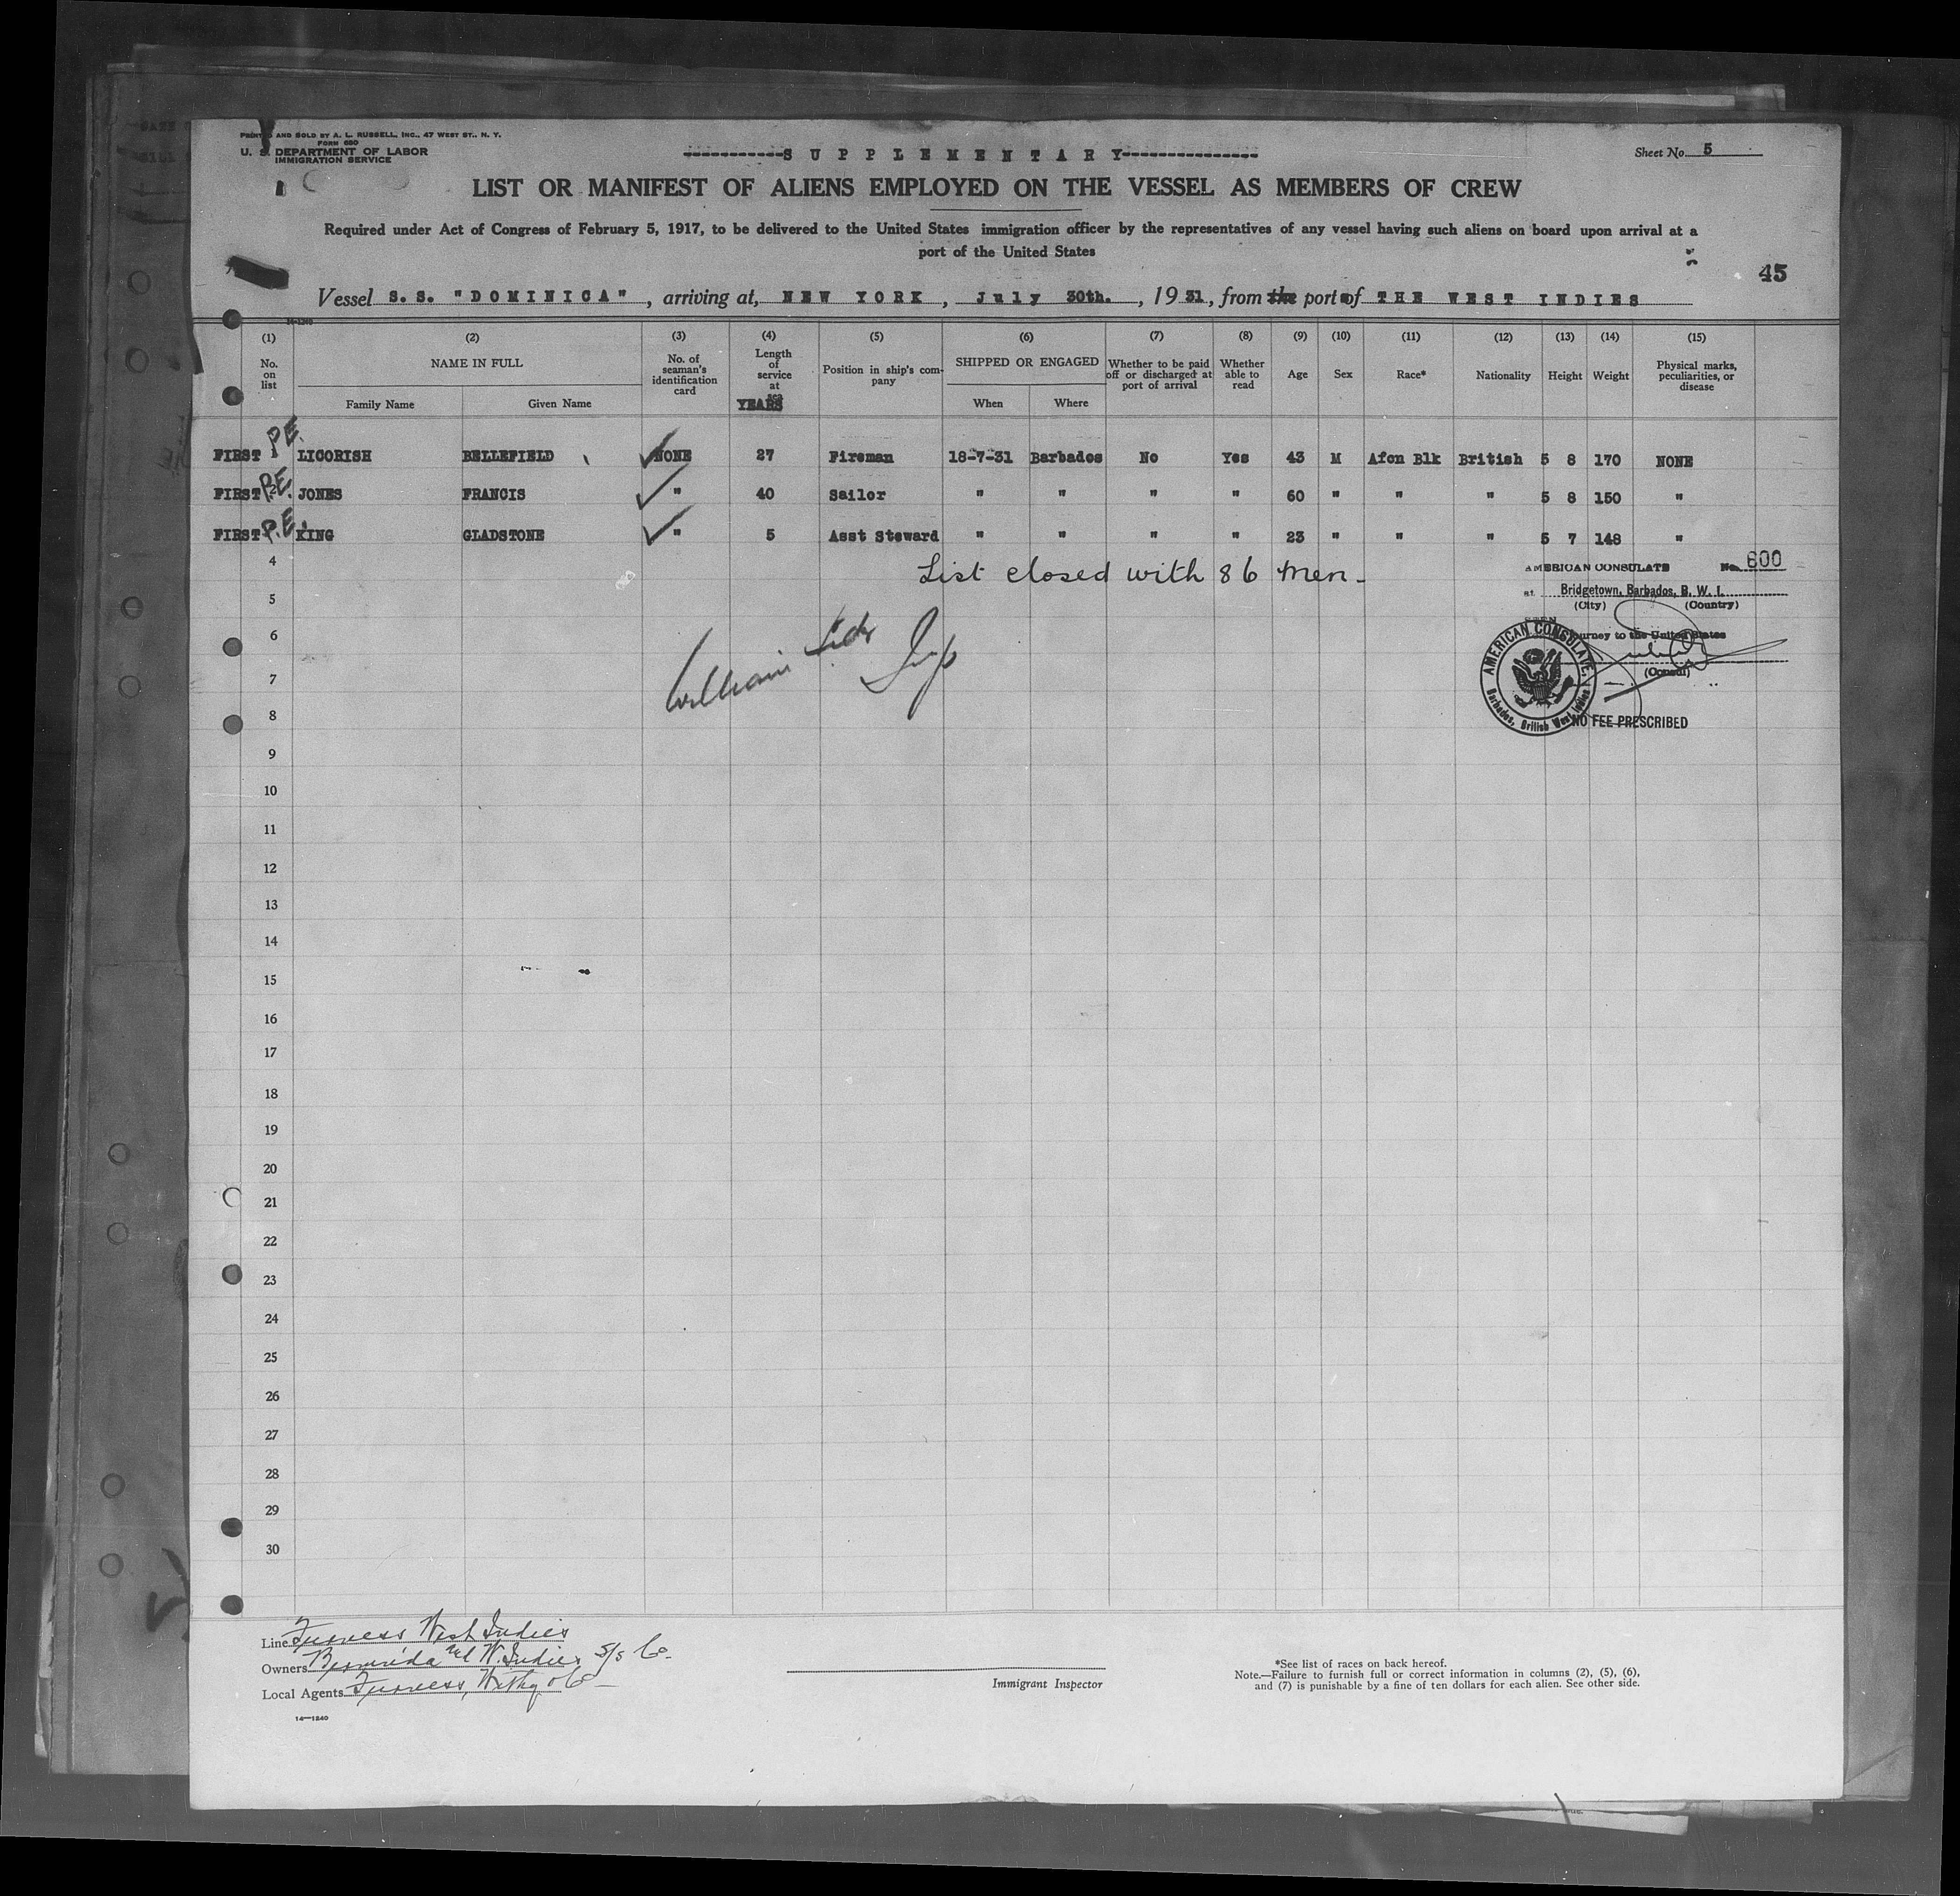 PRINTED AND SOLD BY A. L. RUSSELL, INC., 47 WEST ST., N. Y.
FORM 680
U. S. DEPARTMENT OF LABOR
IMMIGRATION SERVICE
-----------S U P P L E M E N T A R Y---------------
Sheet No. 5
LIST OR MANIFEST OF ALIENS EMPLOYED ON THE VESSEL AS MEMBERS OF CREW
Required under Act of Congress of February 5, 1917, to be delivered to the United States immigration officer by the representatives of any vessel having such aliens on board upon arrival at a
port of the United States
45
Vessel S. S. "DOMINICA", arriving at, NEW YORK, July 30th., 1931, from the port of THE WEST INDIES
14-1240
(1) (2) (3) (4) (5) (6) (7) (8) (9) (10) (11) (12) (13) (14) (15)
No. on list NAME IN FULL No. of seaman's identification card Length of service at sea YEARS Position in ship's company SHIPPED OR ENGAGED Whether to be paid off or discharged at port of arrival Whether able to read Age Sex Race* Nationality Height Weight Physical marks, peculiarities, or disease
Family Name Given Name When Where
FIRST P.E. LICORISH BELLEFIELD NONE 27 Fireman 18-7-31 Barbados No Yes 43 M Afcn Blk British 5 8 170 NONE
FIRST 2 P.E. JONES FRANCIS " 40 Sailor " " " " 60 " " " 5 8 150 "
FIRST P.E. KING GLADSTONE " 5 Asst Steward " " " " 23 " " " 5 7 148 "
4 List closed with 86 men -
AMERICAN CONSULATE No. 600
at Bridgetown, Barbados, B. W. I.
5 (City) (Country)
6 SEEN
journey to the United States
7 William Insp
(Consul)
AMERICAN CONSULATE, Barbados, British West Indies
8 NO FEE PRESCRIBED
9
10
11
12
13
14
15
16
17
18
19
20
21
22
23
24
25
26
27
28
29
30
Line Furness West Indies
Owners Bermuda and W. Indies S/s Co.
Local Agents Furness, Withy & Co
14-1240
Immigrant Inspector
*See list of races on back hereof.
Note.—Failure to furnish full or correct information in columns (2), (5), (6),
and (7) is punishable by a fine of ten dollars for each alien. See other side.